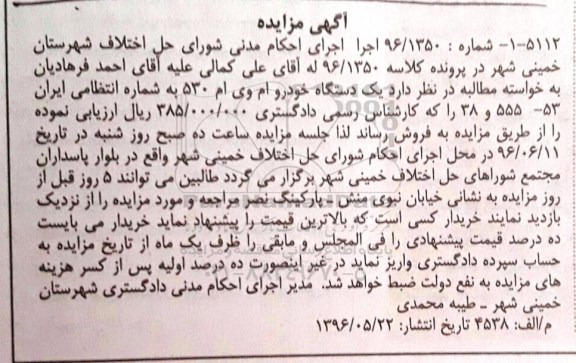 آگهی مزایده
۵۱۱۲-۱- شماره : ۹۶/۱۳۵۰ اجرا اجرای احکام مدنی شورای حل اختلاف شهرستان
خمینی شهر در پرونده کلاسه ۹۶/۱۳۵۰ له آقای علی کمالی علیه آقای احمد فرهادیان
به خواسته مطالبه در نظر دارد یک دستگاه خودرو ام وی ام ۵۳۰ به شماره انتظامی ایران
۵۳- ۵۵۵ و ۳۸ را که کارشناس رسمی دادگستری ۳۸۵/۰۰۰/۰۰۰ ریال ارزیابی نموده
را از طریق مزایده به فروش رساند لذا جلسه مزایده ساعت ده صبح روز شنبه در تاریخ
۹۶/۰۶/۱۱ در محل اجرای احکام شورای حل اختلاف خمینی شهر واقع در بلوار پاسداران
مجتمع شوراهای حل اختلاف خمینی شهر برگزار می گردد طالبین می توانند ۵ روز قبل از
روز مزایده به نشانی خیابان نبوی منش - پارکینگ نصر مراجعه و مورد مزایده را از نزدیک
بازدید نمایند خریدار کسی است که بالاترین قیمت را پیشنهاد نماید خریدار می بایست
ده درصد قیمت پیشنهادی را فی المجلس و مابقی را ظرف یک ماه از تاریخ مزایده به
حساب سپرده دادگستری واریز نماید در غیر اینصورت ده درصد اولیه پس از کسر هزینه
های مزایده به نفع دولت ضبط خواهد شد. مدیر اجرای احکام مدنی دادگستری شهرستان
خمینی شهر ـ طیبه محمدی
م/الف: ۴۵۳۸ تاریخ انتشار: ۱۳۹۶/۰۵/۲۲